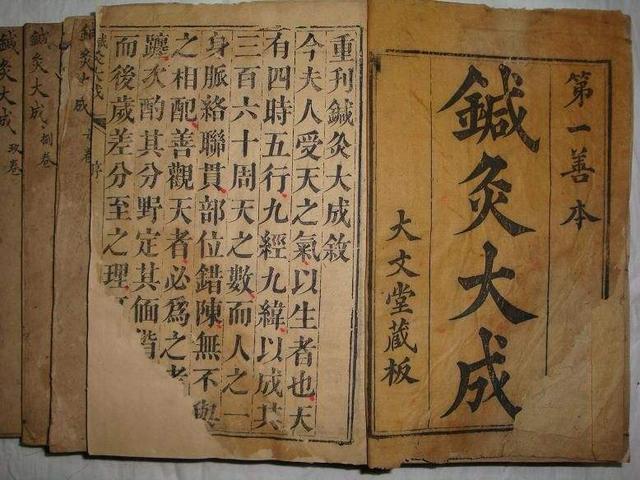 第一善本
鍼灸大成
大文堂藏板
重刊鍼灸大成敘
今夫人受天之氣以生者也天
有四時五行九經九緯以成其
三百六十周天之數而人之一
身脈絡聯貫部位錯陳無不與
之相配善觀天者必為之考
躔次酌其分野定其偭
而後歲差分至之理
鍼灸大成
鍼灸大成
鍼灸大成 捌卷
鍼灸大成 玖卷